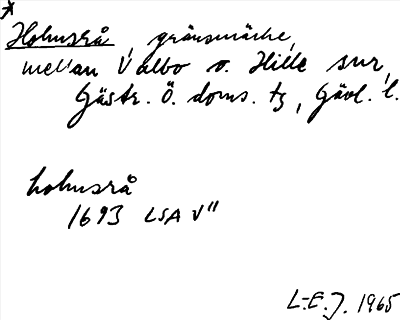 *
Holmsrå, gränsmärke,
mellan Valbo o. Hille snr,
Gästr. Ö. doms. tg, Gävl. l.
holmsrå
1693 LSA V"
L-E.J. 1965